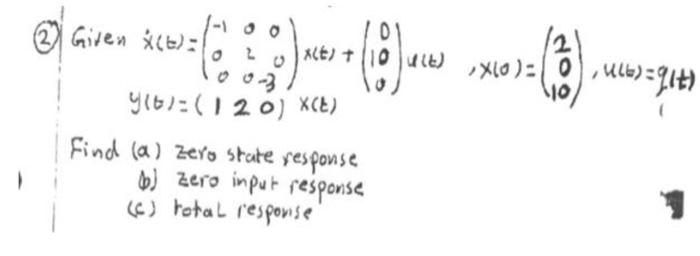 ② Given ẋ(t) = (-1 0 0; 0 2 0; 0 0 -3) x(t) + (0; 10; 0) u(t) , x(0) = (2; 0; 10) , u(t) =
y(t) = (1 2 0) x(t)
Find (a) zero state response
(b) zero input response
(c) total response